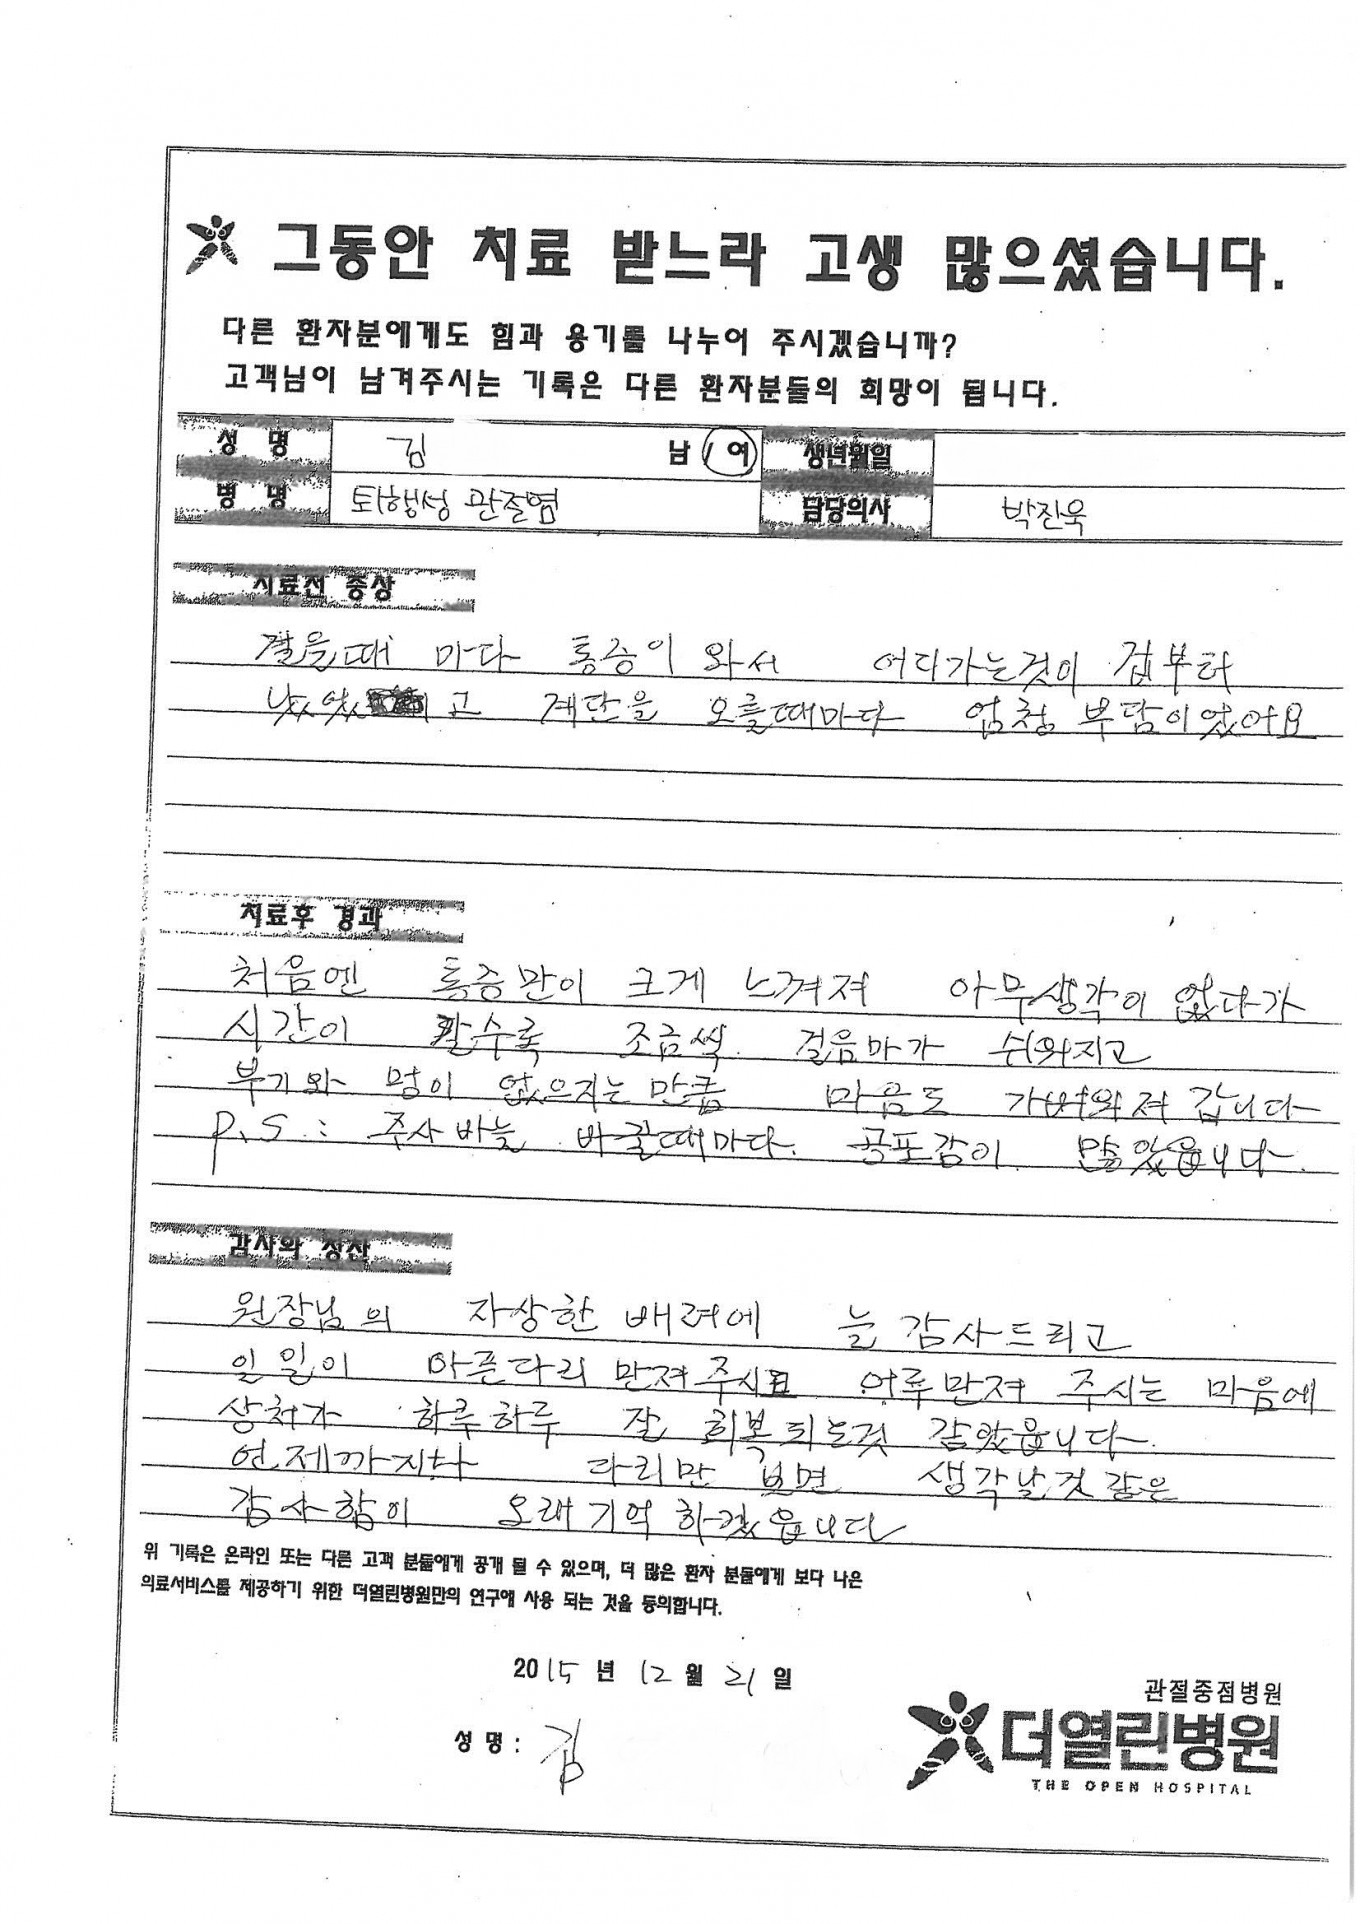 그동안 치료 받느라 고생 많으셨습니다.
다른 환자분에게도 힘과 용기를 나누어 주시겠습니까?
고객님이 남겨주시는 기록은 다른 환자분들의 희망이 됩니다.
성 명 김 남 / 여 생년월일
병 명 퇴행성 관절염 담당의사 박진욱
치료전 증상
걸을때 마다 통증이 와서 어디가는것이 겁부터
났었 고 계단을 오를때마다 엄청 부담이었어요
치료후 경과
처음엔 통증만이 크게 느껴져 아무생각이 없다가
시간이 갈수록 조금씩 걸음마가 쉬와지고
부기와 멍이 없으지는 만큼 마음도 가벼와져 갑니다
P.S : 주사바늘 바꿀때마다. 공포감이 많았읍니다.
감사와 칭찬
원장님의 자상한 배려에 늘 감사드리고
일일이 아픈다리 만져주시고 어루만져 주시는 마음에
상처가 하루하루 잘 회복되는것 같았읍니다.
언제까지나 다리만 보면 생각날것 같은
감사함이 오래 기억 하겠읍니다
위 기록은 온라인 또는 다른 고객 분들에게 공개 될 수 있으며, 더 많은 환자 분들에게 보다 나은
의료서비스를 제공하기 위한 더열린병원만의 연구에 사용 되는 것을 동의합니다.
2015 년 12 월 21 일
성 명 : 김
관절중점병원
더열린병원
THE OPEN HOSPITAL